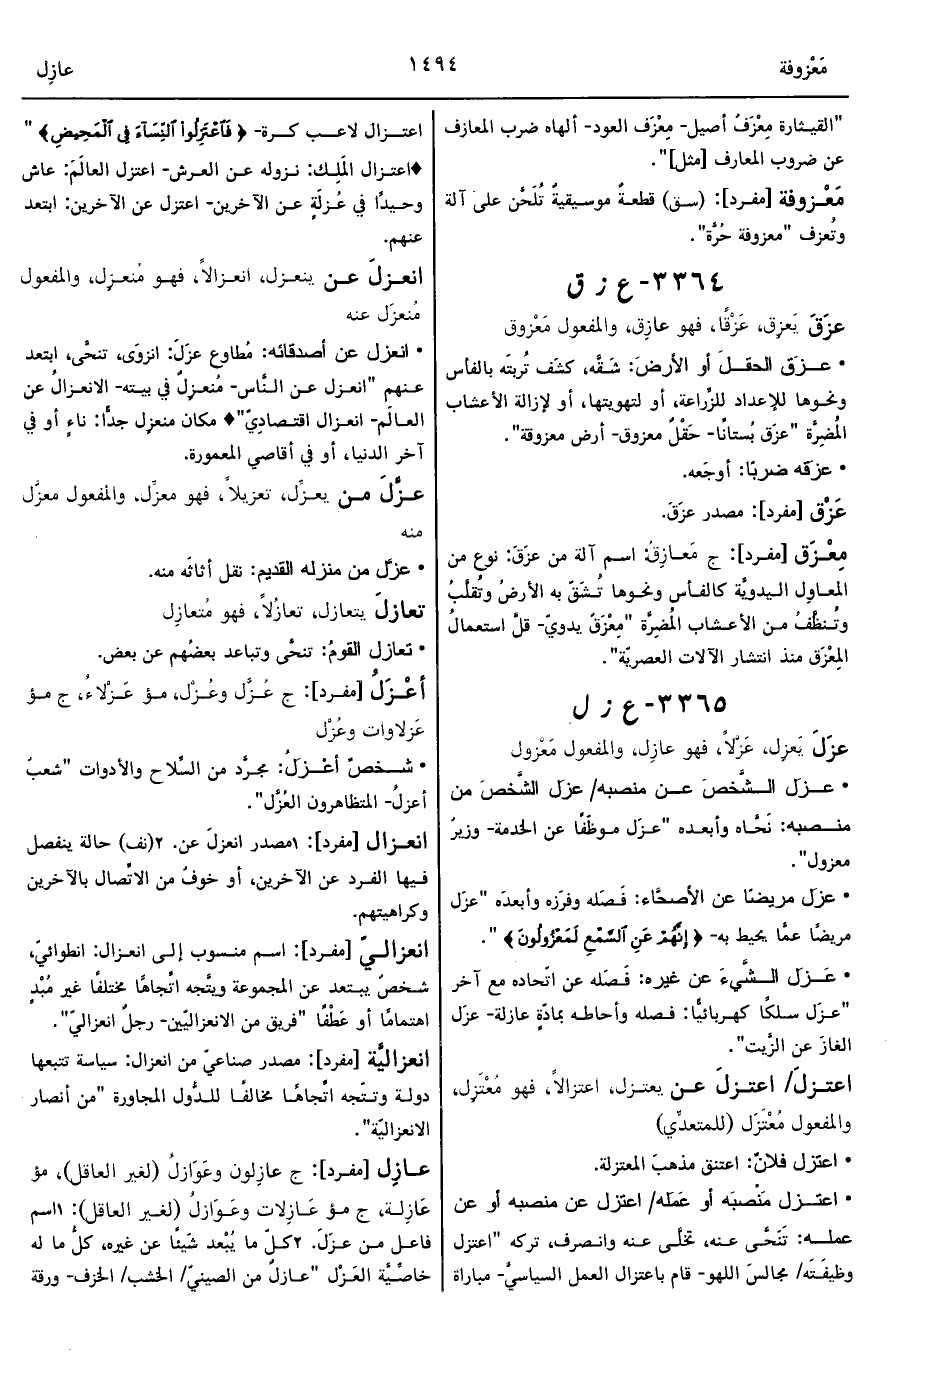 مَعْزوفة
١٤٩٤
عازِل
"القيـثارة مِعْزَفٌ أصيل- مِعْزَف العود- ألهاه ضرب المعازف
عن ضروب المعارف [مثل]".
مَعْزوفة [مفرد]: (سق) قطعةٌ موسيقيةٌ تُلَحَّن على آلة
وتُعزف "معزوفة حُرَّة".
٣٣٦٤- ع ز ق
عزَقَ يَعزِق، عَزْقًا، فهو عازِق، والمفعول مَعْزوق
• عـزَق الحـقـلَ أو الأرضَ: شَقَّه، كشَف تُربتَه بالفأس
ونحوها للإعداد للزِّراعة، أو لتهويتها، أو لإزالة الأعشاب
المُضِرَّة "عزَق بُستانًا- حَقْلٌ معزوق- أرض معزوقة".
• عزَقه ضربًا: أوجَعه.
عَزْق [مفرد]: مصدر عزَقَ.
مِعْزَق [مفرد]: ج مَعـازِقُ: اسـم آلة من عزَقَ: نوع من
المعاوِل اليدويَّة كالفـأس ونحوها تُـشَقّ به الأرضُ وتُقلَّبُ
وتُـنظَّفُ مـن الأعـشاب المُضِرَّة "مِعْزَقٌ يدويّ- قلَّ استعمالُ
المِعْزَق منذ انتشار الآلات العصريّة".
٣٣٦٥- ع ز ل
عزَلَ يَعزِل، عَزْلاً، فهو عازِل، والمفعول مَعْزول
• عـزل الـشَّخصَ عـن منصبه/ عزل الشَّخصَ من
منـصبه: نَحَّاه وأبعده "عزَل موظَّفًا عن الخدمة- وزيرٌ
معزول".
• عزَل مريضًا عن الأصحَّاء: فَصَله وفرَزه وأبعدَه "عزَل
مريضًا عمَّا يحيط به- ﴿ إِنَّهُمْ عَنِ ٱلسَّمْعِ لَمَعْزُولُونَ ﴾ ".
• عَـزل الـشَّيءَ عن غيره: فَصَله عن اتّحاده مع آخر
"عـزَل سـلكًا كهـربائيًّا: فـصله وأحاطه بمادّةٍ عازلة- عزَل
الغازَ عن الزَّيت".
اعتـزلَ/ اعتـزلَ عـن يعتـزل، اعتـزالاً، فهو مُعْتَزِل،
والمفعول مُعْتَزَل (للمتعدِّي)
• اعتزل فلانٌ: اعتنق مذهبَ المعتزلة.
• اعتـزل مَنْصبَه أو عَمَله/ اعتزل عن منصبه أو عن
عملـه: تَنَحَّى عنه، تخلَّى عنه وانصرف، تركه "اعتزل
وظيفَتَه/ مجالسَ اللهو- قام باعتزال العمل السياسيّ- مباراة
اعتـزال لاعـب كـرة- ﴿ فَٱعْتَزِلُوا۟ ٱلنِّسَآءَ فِى ٱلْمَحِيضِ ﴾ "
♦اعتـزال المَلِـك: نـزوله عـن العـرش- اعتزل العالَمَ: عاش
وحـيدًا في عُـزلَةٍ عـن الآخـرين- اعتزل عن الآخرين: ابتعد
عنهم.
انعـزلَ عـن ينعـزل، انعـزالاً، فهـو مُنعـزِل، والمفعول
مُنعزَل عنه
• انعزل عن أصدقائه: مُطاوع عزَلَ: انزوَى، تنحَّى، ابتعد
عـنهم "انعزل عـن النَّاس- مُنعـزِلٌ في بيته- الانعزالُ عن
العالَـم- انعـزال اقتـصاديّ"♦ مكان منعزِل جدًّا: ناءٍ أو في
آخر الدنيا، أو في أقاصي المعمورة.
عـزَّلَ مـن يعـزِّل، تعزيلاً، فهو معزِّل، والمفعول معزَّل
منه
• عزَّل من منزله القديم: نقل أثاثَه منه.
تعازلَ يتعازل، تعازُلاً، فهو مُتعازِل
• تعازل القومُ: تنحَّى وتباعد بعضُهم عن بعض.
أعْـزَلُ [مفرد]: ج عُـزَّل وعُـزْل، مـؤ عَـزْلاءُ، ج مـؤ
عَزلاوات وعُزْل
• شـخصٌ أعْـزلُ: مجرَّد من السِّلاح والأدوات "شعبٌ
أعزلُ- المتظاهرون العُزَّل".
انعـزال [مفرد]: ١مصدر انعزلَ عن. ٢(نف) حالة ينفصل
فيها الفرد عن الآخرين، أو خوفٌ من الاتّصال بالآخرين
وكراهيتهم.
انعزالـيّ [مفرد]: اسـم منسوب إلـى انعزال: انطوائيّ،
شـخصٌ يبتعد عن المجموعة ويتَّجه اتِّجاهًا مختلفًا غير مُبْدٍ
اهتمامًا أو عَطْفًا "فريق من الانعزاليّين- رجلٌ انعزاليّ".
انعزاليَّة [مفرد]: مصدر صناعيّ من انعزال: سياسة تتبعها
دولـة وتـتّجه اتِّجاهًـا مخالفًـا للـدُّول المجاورة "من أنصار
الانعزاليّة".
عـازِل [مفرد]: ج عازِلون وعَوَازلُ (لغير العاقل)، مؤ
عَازِلـة، ج مـؤ عَـازِلات وعَـوازلُ (لغـير العاقل): ١اسم
فاعل مـن عـزلَ. ٢كلّ ما يُبْعد شَيْئًا عن غيره، كلُّ ما له
خاصِّيَّة العَـزْل "عـازلٌ من الصينيّ/ الخشب/ الخزف- ورقة